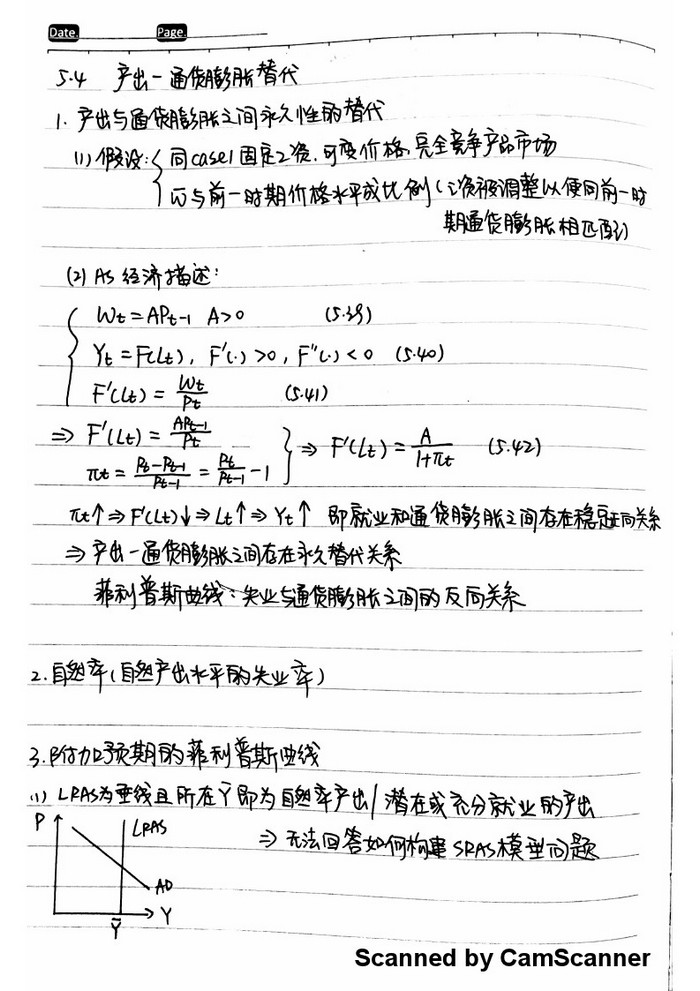 Date Page
5.4 产出-通货膨胀替代
1. 产出与通货膨胀之间永久性的替代
(1) 假设: { 同case1 固定工资, 可变价格, 完全竞争产品市场
W̄与前一时期价格水平成比例 (工资被调整以便同前一时
期通货膨胀相匹配)
(2) AS 经济描述:
{ Wt = APt-1 A>0 (5.39)
Yt = F(Lt), F'(·)>0, F''(·)<0 (5.40)
F'(Lt) = Wt/Pt (5.41)
⇒ F'(Lt) = APt-1/Pt
πt = (Pt-Pt-1)/Pt-1 = Pt/Pt-1 - 1 } ⇒ F'(Lt) = A/(1+πt) (5.42)
πt↑ ⇒ F'(Lt)↓ ⇒ Lt↑ ⇒ Yt↑ 即就业和通货膨胀之间存在稳定正向关系
⇒ 产出-通货膨胀之间存在永久替代关系
菲利普斯曲线: 失业与通货膨胀之间的反向关系
2. 自然率 (自然产出水平的失业率)
3. 附加预期的菲利普斯曲线
(1) LRAS为垂线且所在Ȳ即为自然率产出/潜在或充分就业的产出
⇒ 无法回答如何构建SRAS模型问题
P
LRAS
AD
Y
Ȳ
Scanned by CamScanner